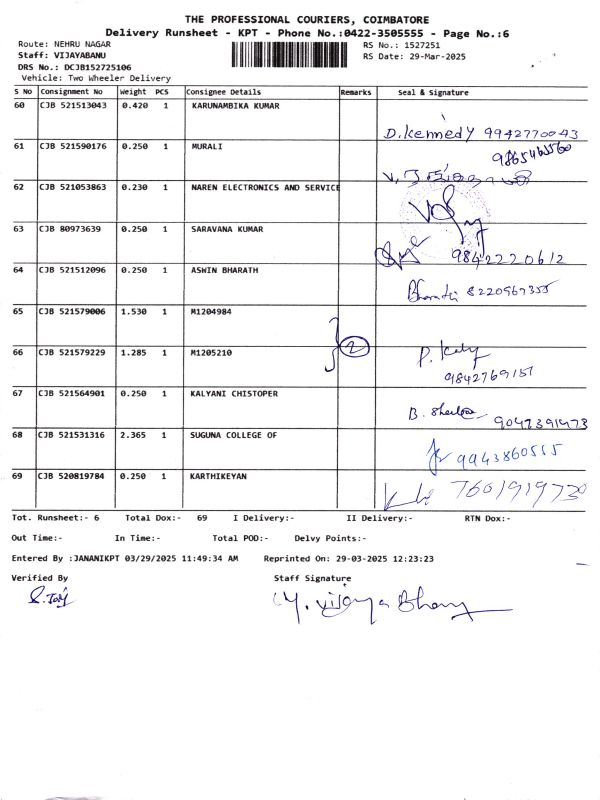 THE PROFESSIONAL COURIERS, COIMBATORE
Delivery Runsheet - KPT - Phone No.:0422-3505555 - Page No.:6
Route: NEHRU NAGAR RS No.: 1527251
Staff: VIJAYABANU RS Date: 29-Mar-2025
DRS No.: DCJB152725106
Vehicle: Two Wheeler Delivery
S No Consignment No Weight PCS Consignee Details Remarks Seal & Signature
60 CJB 521513043 0.420 1 KARUNAMBIKA KUMAR
D. Kennedy 9942770043
61 CJB 521590176 0.250 1 MURALI
9865465560
62 CJB 521053863 0.230 1 NAREN ELECTRONICS AND SERVICE
63 CJB 80973639 0.250 1 SARAVANA KUMAR
9842220612
64 CJB 521512096 0.250 1 ASWIN BHARATH
8220967355
65 CJB 521579006 1.530 1 M1204984
2
66 CJB 521579229 1.285 1 M1205210
9842769157
67 CJB 521564901 0.250 1 KALYANI CHISTOPER
9047391473
68 CJB 521531316 2.365 1 SUGUNA COLLEGE OF
9943860555
69 CJB 520819784 0.250 1 KARTHIKEYAN
7601919730
Tot. Runsheet:- 6 Total Dox:- 69 I Delivery:- II Delivery:- RTN Dox:-
Out Time:- In Time:- Total POD:- Delvy Points:-
Entered By :JANANIKPT 03/29/2025 11:49:34 AM Reprinted On: 29-03-2025 12:23:23
Verified By Staff Signature
M. Vijaya Bhanu